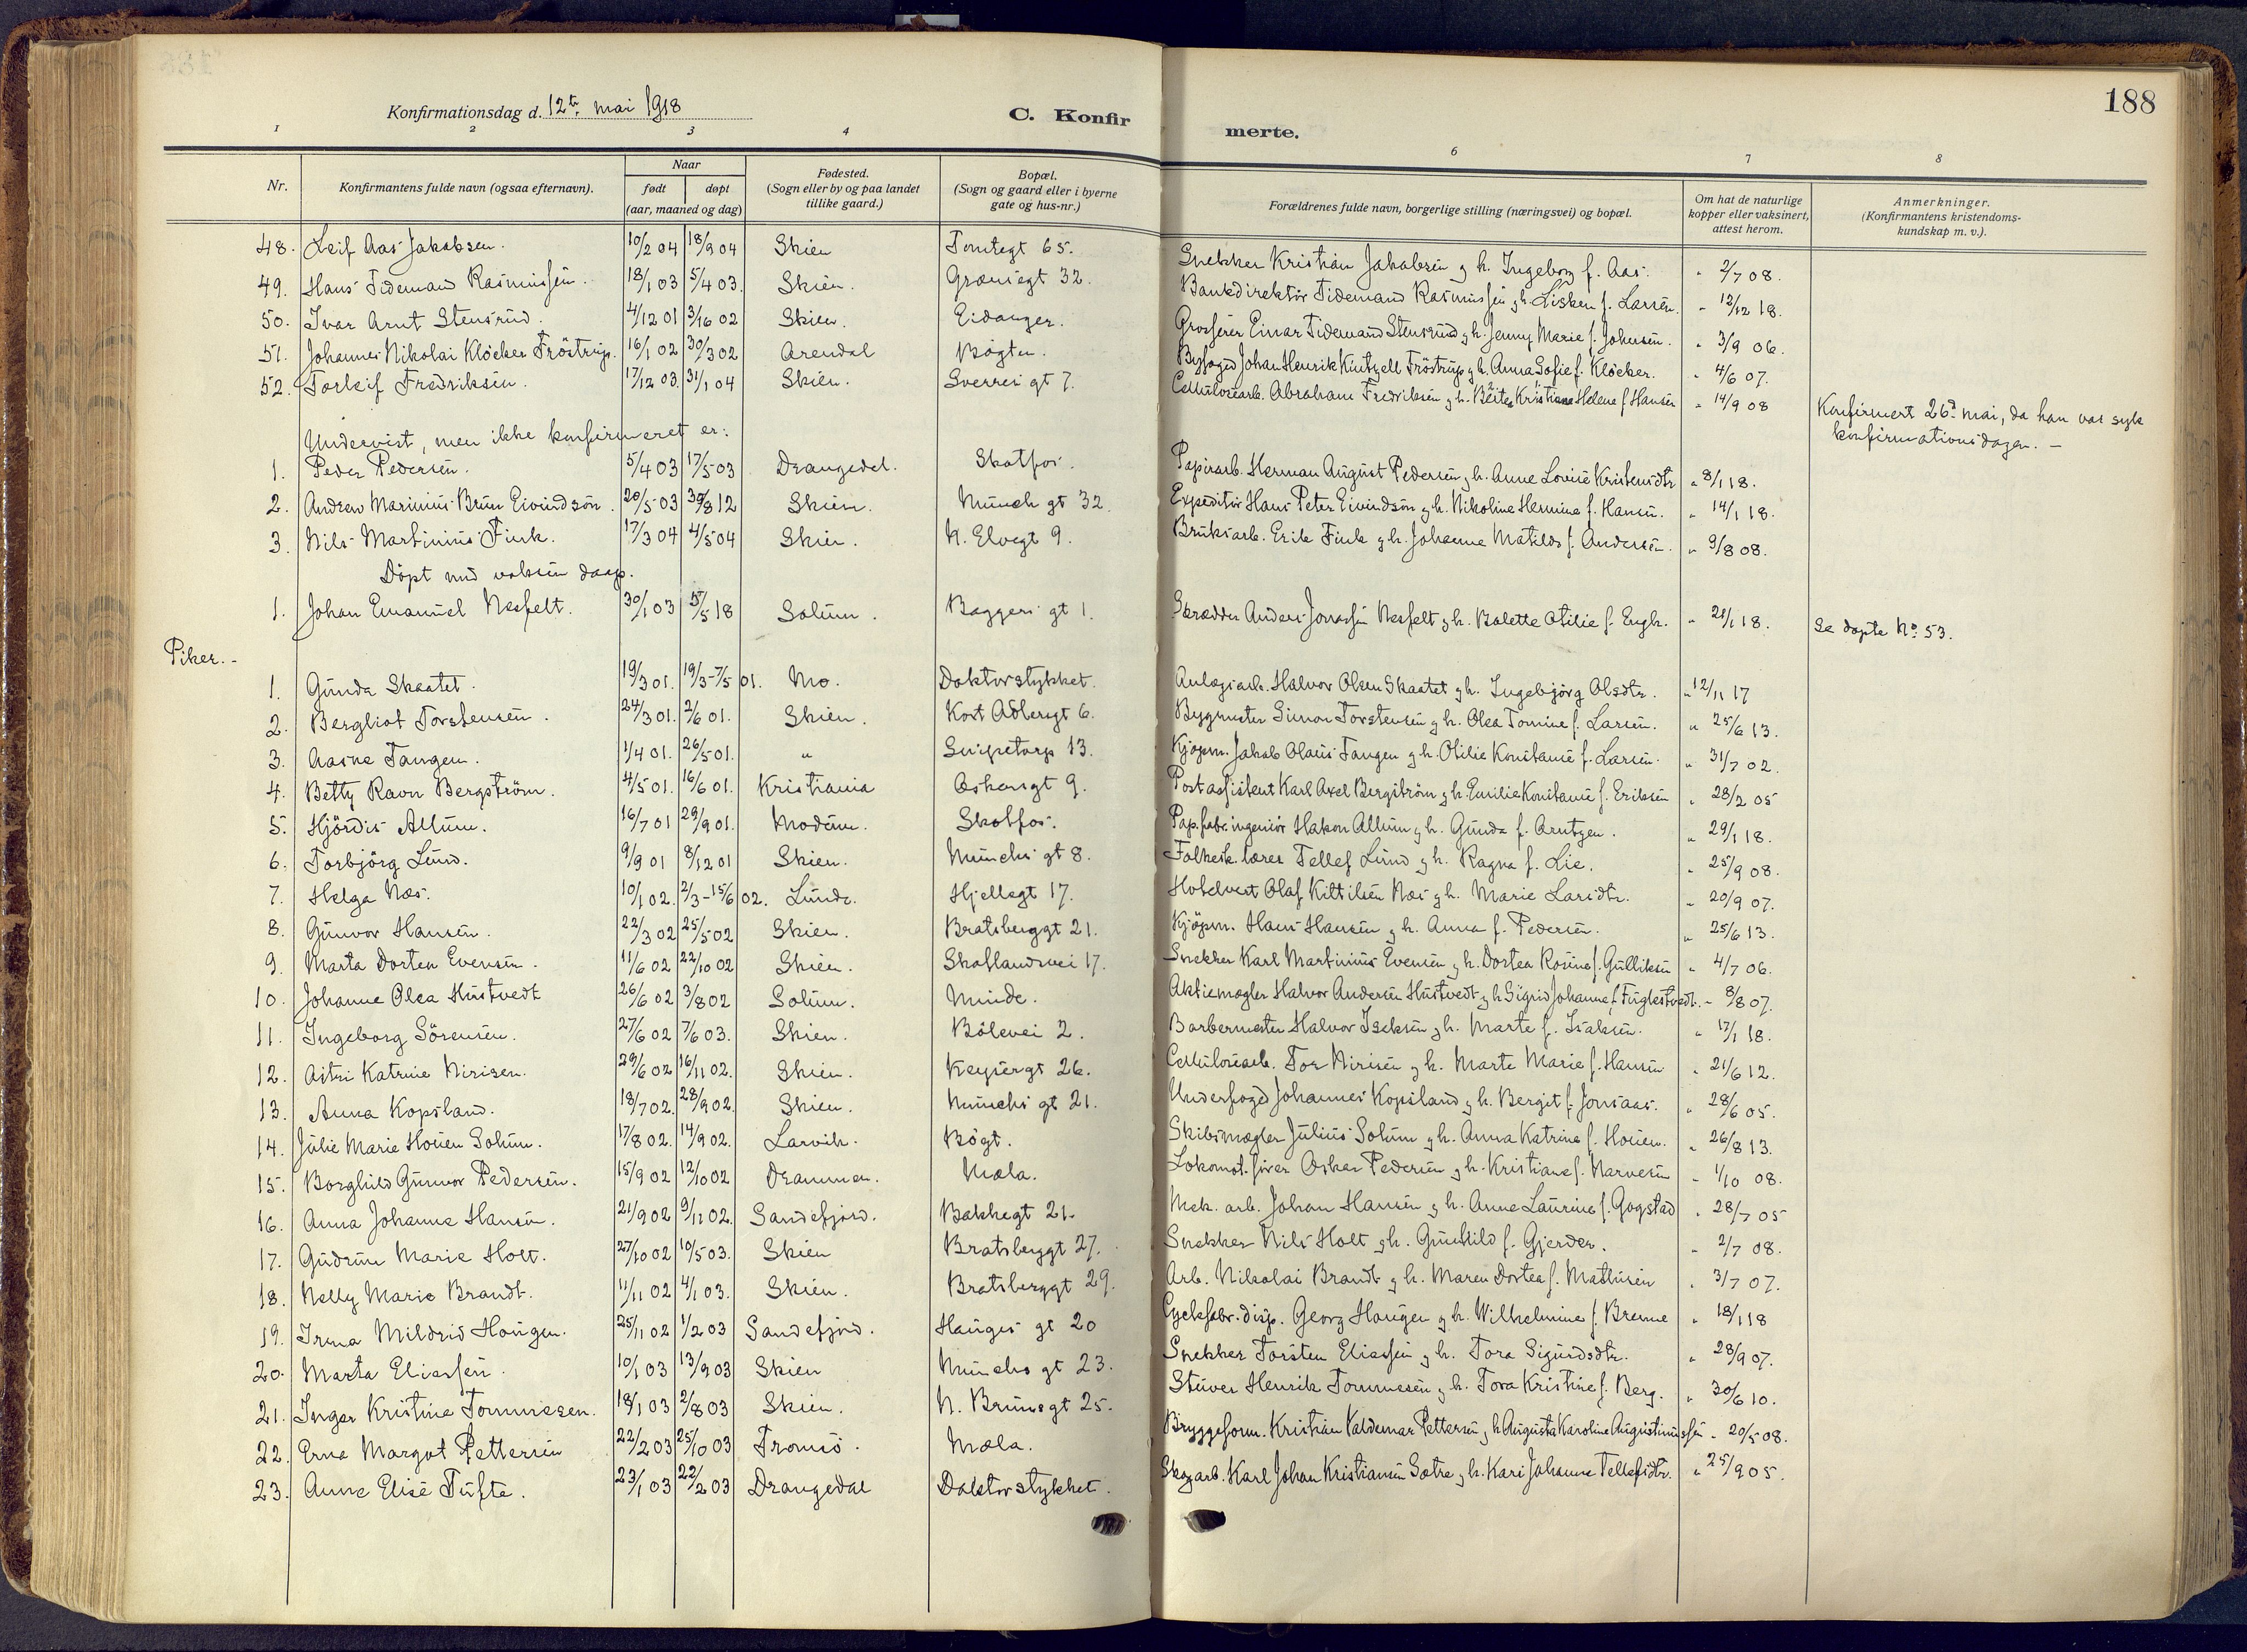 188
Konfirmationsdag d. 12te mai 1918
C. Konfirmerte.
1 2 3 4 6 7 8
Nr.
Konfirmantens fulde navn (ogsaa efternavn).
Naar
født
døpt
(aar, maaned og dag)
Fødested.
(Sogn eller by og paa landet
tillike gaard.)
Bopæl.
(Sogn og gaard eller i byerne
gate og hus-nr.)
Forældrenes fulde navn, borgerlige stilling (næringsvei) og bopæl.
Om hat de naturlige
kopper eller vaksinert,
attest herom.
Anmerkninger.
(Konfirmantens kristendoms-
kundskap m. v.).
48. Leif Aas Jakobsen. 10/2 04 18/9 04 Skien Tomtegt 65. Snekker Kristian Jakobsen g h. Ingeborg f. Aas. " 2/7 08.
49. Hans Tidemand Rasmussen. 18/1 03 5/4 03. Skien. Grænsegt 32. Bankdirektör Tidemand Rasmussen g h. Lisken f. Larsen. " 12/12 18.
50. Ivar Arnt Stensrud. 4/12 01 3/16 02 Skien. Eidanger. Grosserer Einar Tidemand Stensrud g h. Jenny Marie f. Johnsen. " 3/9 06.
51. Johannes Nikolai Klöcker Fröstrup. 16/1 02 30/3 02 Arendal Bögtn. Byfoged Johan Henrik Kintzell Fröstrup g h. Anna Sofie f. Klöcker. " 4/6 07.
52. Torleif Fredriksen. 17/12 03. 31/1 04 Skien. Sverres gt 7. Cellulosearb. Abraham Fredriksen g h. Kristiane Helene f Hansen " 14/9 08 Konfirmert 26d mai, da han var syk
konfirmationsdagen. –
Undervist, men ikke konfirmeret er:
1. Peder Pedersen. 5/4 03 17/5 03 Drangedal. Skotfos. Papirarb. Herman August Pedersen g h. Anne Lovise Kristensdtr " 8/1 18.
2. Andrew Marinius Brun Eivindson. 20/5 03 30/8 12 Skien. Munch gt 32. Expeditör Hans Peter Eivindson g h. Nikoline Hermine f. Hansen. " 14/1 18.
3. Nils Martinius Fink. 17/3 04 4/5 04 Skien. N. Elvegt 9. Bruksarb. Erik Fink g h. Johanne Matilde f. Andersen. " 9/8 08.
Döpt med voksen daap.
1. Johan Emanuel Nesfelt. 30/1 03 5/5 18 Solum. Baggers gt 1. Skrædder Anders Jonassen Nesfelt g h. Bolette Otilie f. Engh. " 21/1 18. Se döpte No 53.
Piker. –
1. Gunda Skaatet. 19/3 01. 19/3-7/5 01. Mo. Doktorstykket. Anlægsarb. Halvor Olsen Skaatet g h. Ingebjörg Olsdtr. " 12/11 17
2. Bergliot Torstensen. 24/3 01. 2/6 01. Skien. Kort Adlersgt 6. Bygmester Simon Torstensen g h. Olea Tomine f. Larsen. " 25/6 13.
3. Aasne Tangen. 1/4 01. 26/5 01. " Snipetorp 13. Kjöpm. Jakob Olaus Tangen g h. Otilie Konstanse f. Larsen. " 31/7 02.
4. Betty Ravn Bergström. 4/5 01. 16/6 01. Kristiania Oskersgt 9. Postassistent Karl Axel Bergström g h. Emilie Konstanse f. Eriksen " 28/2 05
5. Hjördis Allum. 16/7 01 29/9 01. Modum. Skotfos. Pap.fabr. ingeniör Hakon Allum g h. Gunda f. Arntzen. " 29/1 18.
6. Torbjörg Lund. 9/9 01 8/12 01 Skien. Munchs gt 8. Folkesk. lærer Tellef Lund g h. Ragna f. Lie. " 25/9 08.
7. Helga Næs. 10/1 02. 2/3-15/6 02. Lunde. Hjellegt 17. Hotelvert Olaf Kittilsen Næs g h. Marie Larsdtr. " 20/9 07.
8. Gunvor Hansen. 22/3 02 25/5 02 Skien. Bratsberggt 21. Kjöpm. Hans Hansen g h. Anna f. Pedersen. " 25/6 13.
9. Marta Dortea Evensen. 11/6 02 22/10 02 Skien. Skotlandsvei 17. Snekker Karl Martinius Evensen g h. Dortea Rosine f. Gulliksen " 4/7 06.
10. Johanne Olea Hustvedt 26/6 02 3/8 02 Solum. Minde. Aktiemægler Halvor Andersen Hustvedt g h Sigrid Johanne f. Fuglestvedt. " 8/8 07.
11. Ingeborg Sörensen. 27/6 02 7/6 03. Skien. Bölevei 2. Barbermester Halvor Isaksen g h. Marte f. Isaksen. " 17/1 18.
12. Astri Katrine Nirisen. 29/6 02 16/11 02. Skien. Keysersgt 26. Cellulosearb. Tor Nirisen g h. Marte Marie f. Hansen " 21/6 12.
13. Anna Kopsland. 18/7 02. 28/9 02. Skien. Munchs gt 21. Underfoged Johannes Kopsland g h. Bergit f. Jonsaas. " 28/6 05.
14. Julie Marie Houen Solum. 17/8 02. 14/9 02. Larvik. Bögt. Skibsmægler Julius Solum g h. Anna Katrine f. Houen. " 26/8 13.
15. Borghild Gunvor Pedersen. 15/9 02 12/10 02 Drammen. Mæla. Lokomot.förer Oskar Pedersen g h. Kristiane f. Narvesen " 1/10 08.
16. Anna Johanne Hansen. 21/9 02 9/11 02. Sandefjord. Bakkegt 21. Mek. arb. Johan Hansen g h. Anne Laurine f. Gogstad " 28/7 05
17. Gudrun Marie Holt. 27/10 02 10/5 03. Skien Bratsberggt 27. Snekker Nils Holt g h. Gunhild f. Gjerder. " 2/7 08.
18. Nelly Marie Brandt. 11/11 02 4/1 03. Skien. Bratsberggt 29. Arb. Nikolai Brandt g h. Maren Dortea f. Mathisen " 3/7 07.
19. Irma Mildrid Haugen. 25/11 02 1/2 03 Sandefjord. Hauges gt 20 Cyckfabr. disp. Georg Haugen g h. Wilhelmine f. Brenne " 18/1 18
20. Marta Eliassen. 10/1 03 13/9 03 Skien Munchs gt 23. Snekker Torsten Eliassen g h. Tora Sigurdsdtr. " 28/9 07.
21. Inger Kristine Tommesen. 18/1 03 2/8 03 Skien. N. Brunsgt 25. Stuver Henrik Tommesen g h. Tora Kristine f. Berg. " 30/6 10.
22. Erna Margot Pettersen 22/2 03 25/10 03 Tromsö. Mæla. Bryggeform. Kristian Valdemar Pettersen g h Augusta Karoline Augustinussen " 20/5 08.
23. Anne Elise Tufte. 23/1 03 22/2 03 Drangedal Doktorstykket. Skogarb. Karl Johan Kristiansen Sætre g h. Kari Johanne Tellefsdtr. " 25/9 05.